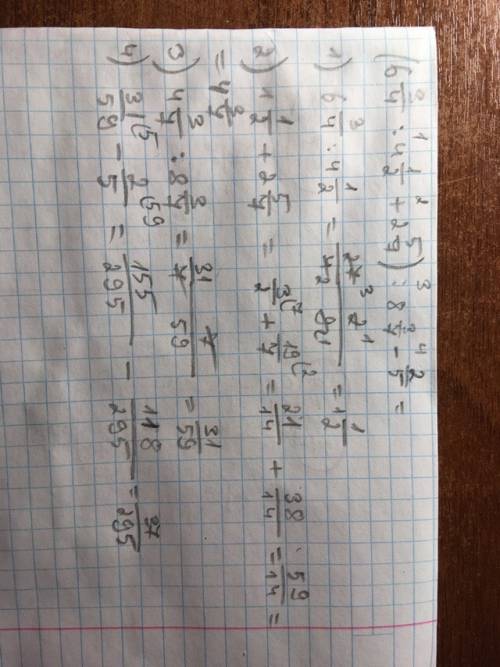 (6 3/4 : 4 1/2 + 2 5/7) : 8 3/7 - 2/5 =
1) 6 3/4 : 4 1/2 = 27 3 · 2 1 / 4 2 · 9 1 = 1 1/2
2) 1 1/2 + 2 5/7 = 3/2 + 19/7 = 21/14 + 38/14 = 59/14 =
= 4 3/7
3) 4 3/7 : 8 3/7 = 31/7 · 7/59 = 31/59
4) 31/59 - 2/5 = 155/295 - 118/295 = 37/295